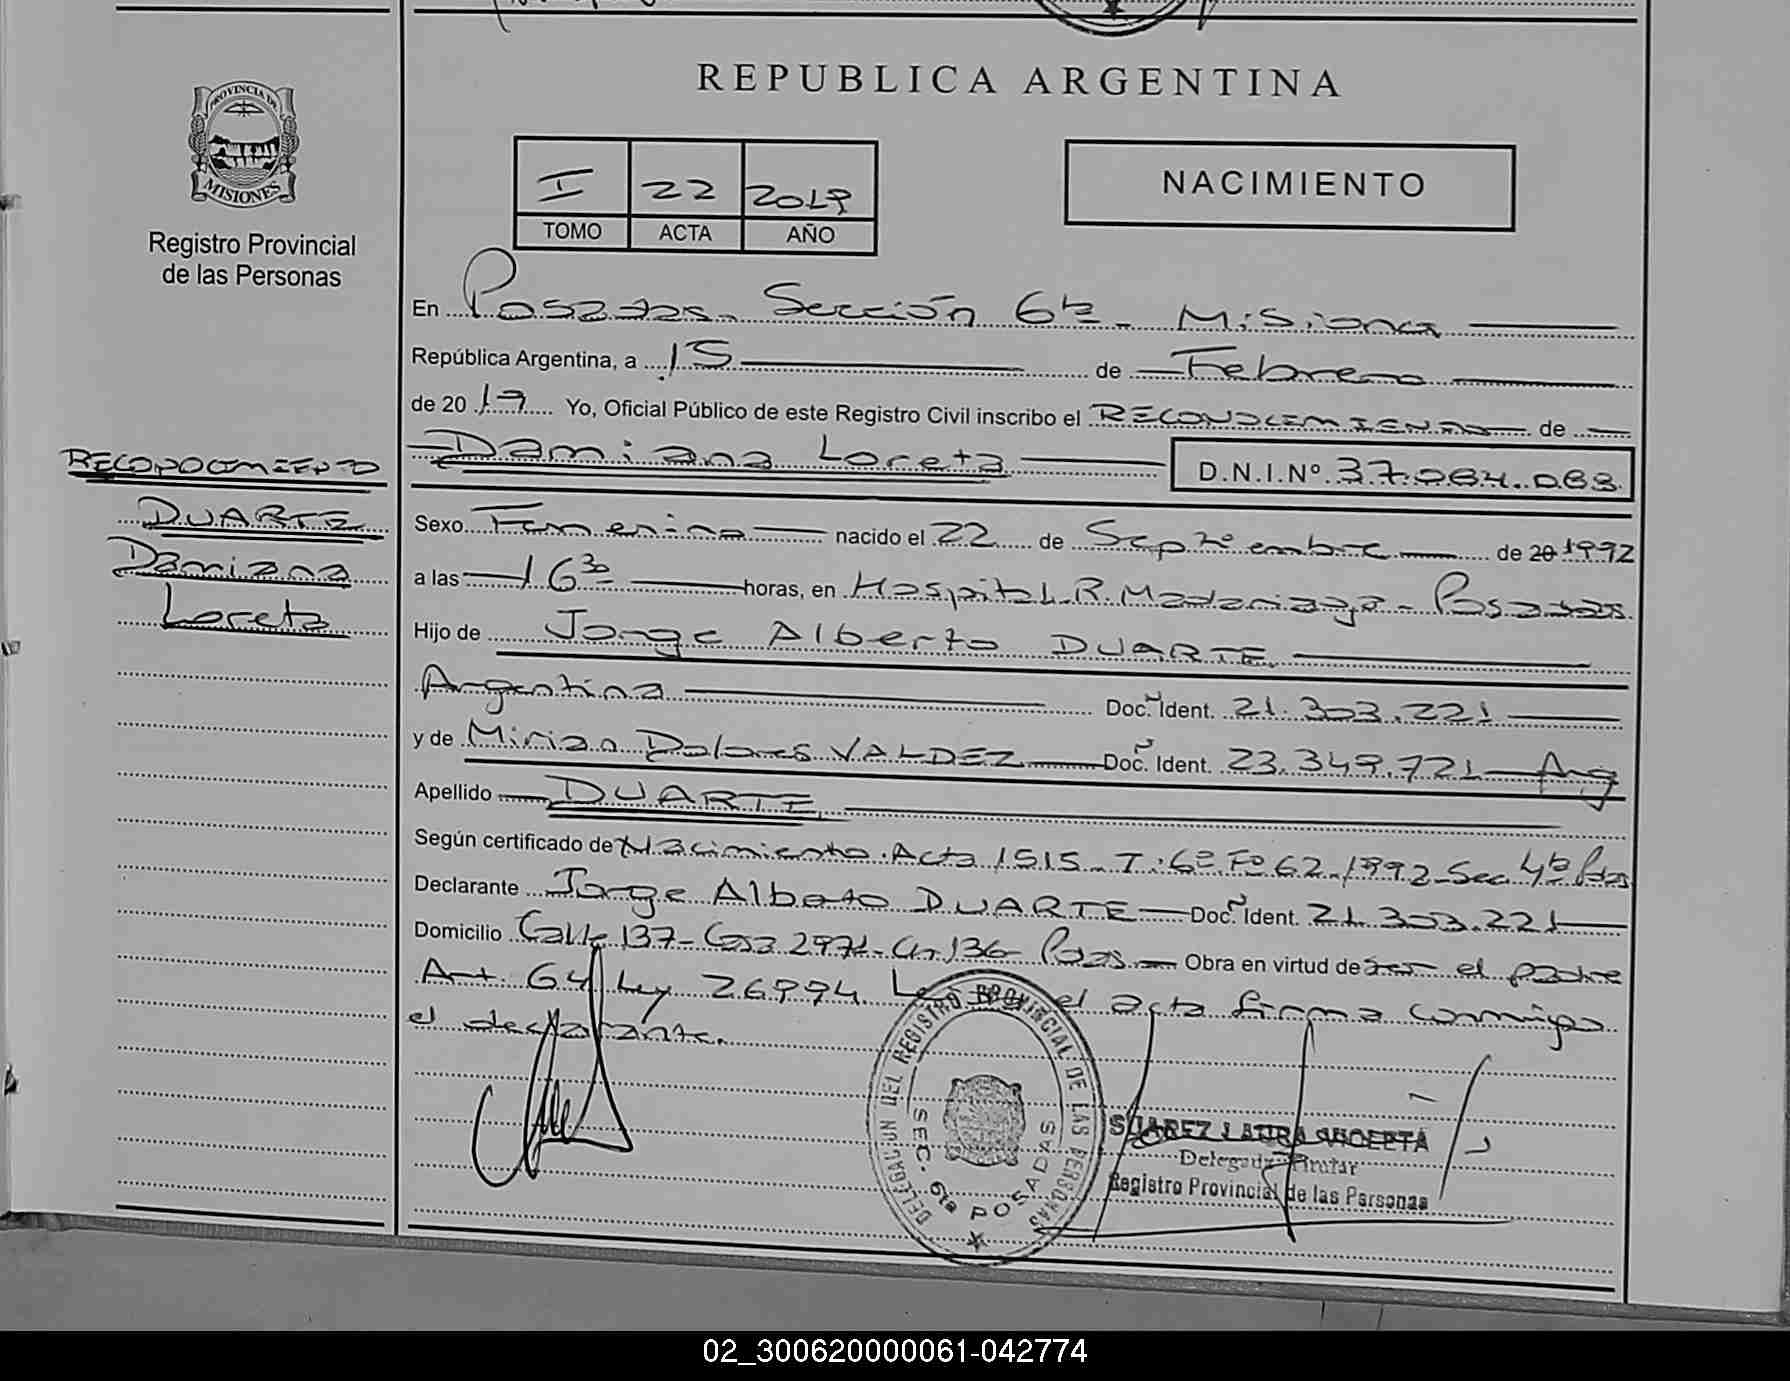 REPUBLICA ARGENTINA
PROVINCIA DE
MISIONES
Registro Provincial
de las Personas
I 22
TOMO ACTA AÑO
NACIMIENTO
En Posadas. Sección 6ta. Misiones
República Argentina, a 15 de Febrero
de 2017 Yo, Oficial Público de este Registro Civil inscribo el RECONOCIMIENTO de
Damiana Loreta D.N.I.Nº 37.084.088
RECONOCIMIENTO
DUARTE
Damiana
Loreta
Sexo Femenino nacido el 22 de Septiembre de 20 1992
a las 16 30 horas, en Hospital R. Madariaga - Posadas.
Hijo de Jorge Alberto DUARTE
Argentina Doc. Ident. 21.303.221
y de Mirian Dolores VALDEZ Doc. Ident. 23.349.721 Arg
Apellido DUARTE
Según certificado de Nacimiento. Acta 1515 - T: 6º Fº 62 - 1992 - Sec 4ta Pdas
Declarante Jorge Alberto DUARTE Doc. Ident. 21.303.221
Domicilio Calle 137 - Casa 2971 - Ch 136 - Pdas Obra en virtud de ser el padre
Art. 64 Ley 26994. el acta firma conmigo
el declarante.
DELEGACION DEL REGISTRO PROVINCIAL DE LAS PERSONAS
SEC. 6ta POSADAS
SUAREZ LAURA
Delegada Titular
Registro Provincial de las Personas
02_300620000061-042774